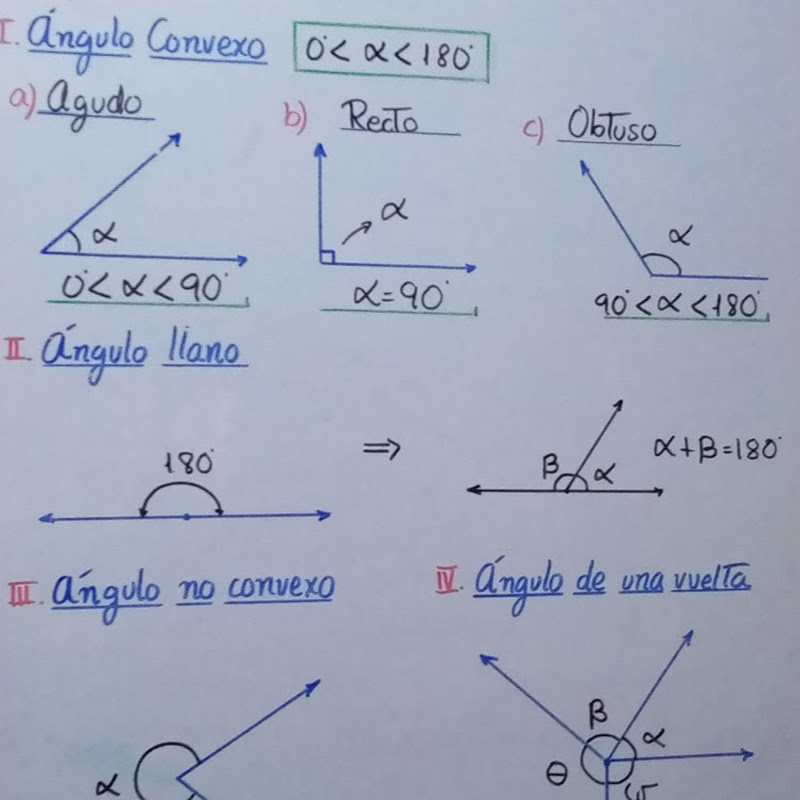 I. Ángulo Convexo 0°< α < 180°
a) Agudo b) Recto c) Obtuso
α α α
0°< α < 90° α = 90° 90° < α < 180°
II. Ángulo llano
180° ⇒ β α α+β=180°
III. Ángulo no convexo IV. Ángulo de una vuelta
β α
α θ